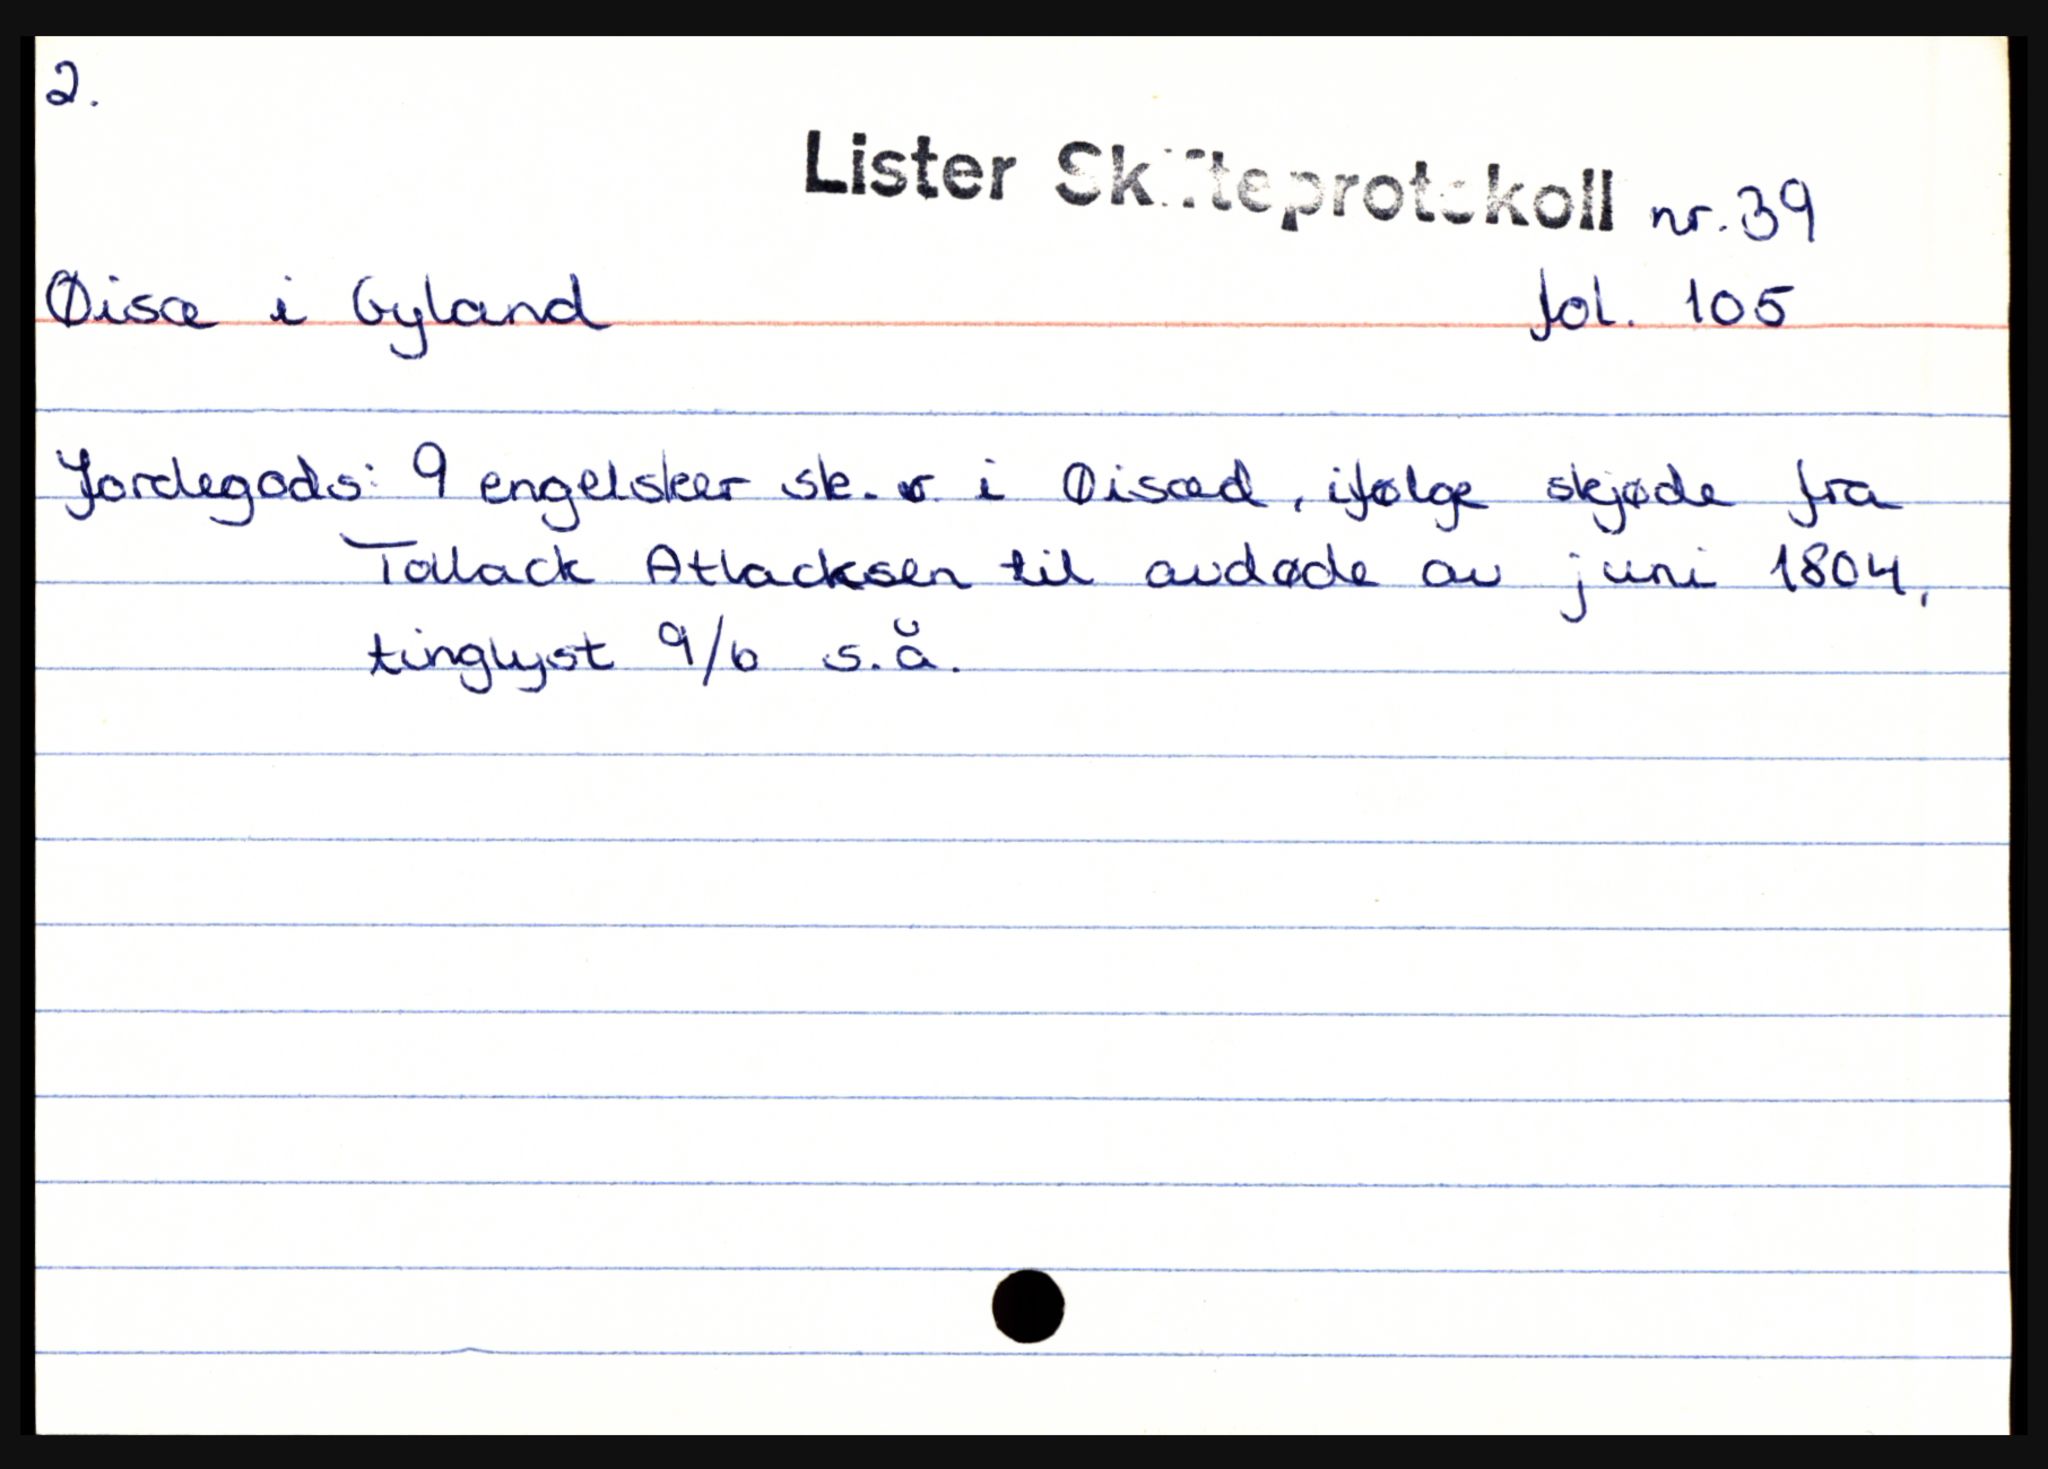 2.
Lister Skifteprotokoll nr. 39
Øisæ i Gyland fol. 105
Jordegods: 9 engelsker sk. r. i Øisæd, ifølge skjøde fra
Tollack Atlacksen til avdøde av juni 1804,
tinglyst 9/6 s.å.